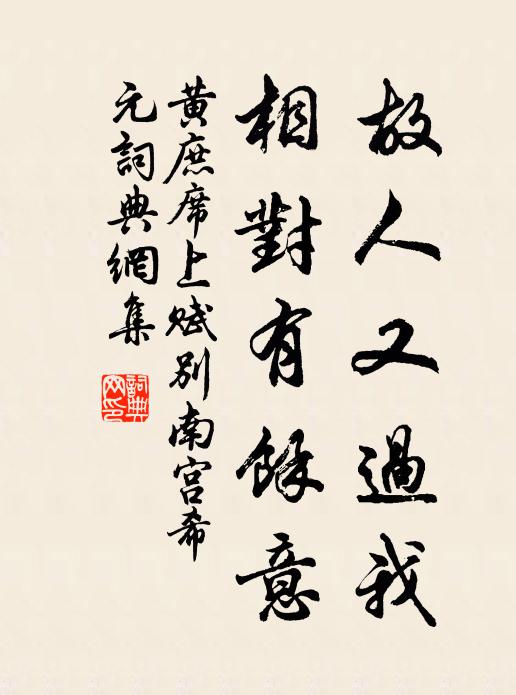 故人又過我
相對有餘意
黄庶席上賦别南宫希
元詞典網集
詞典
网印